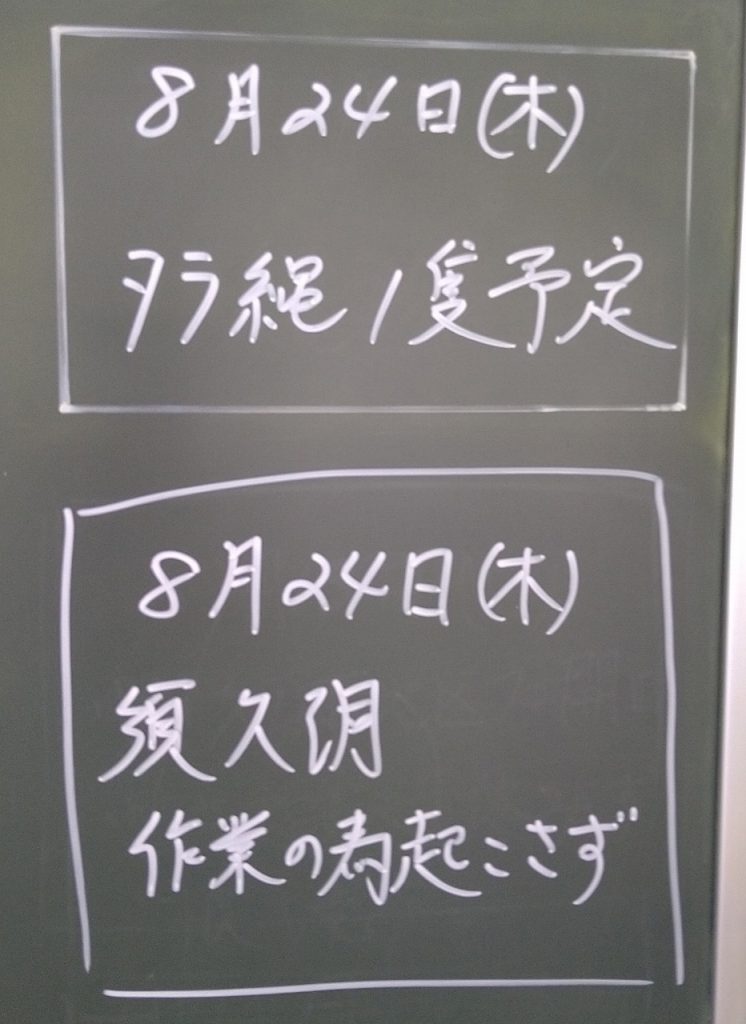 8月24日(木)
タラ縄1隻予定
8月24日(木)
須久明
作業の為起こさず